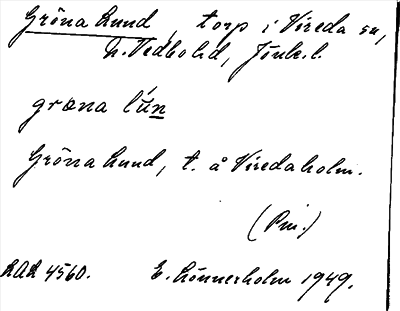 Gröna Lund, torp i Vireda sn,
N. Vedbo hd, Jönk. l.
grœna lún
Gröna Lund, t. å Viredaholm.
(Pm.)
LAL 4560. E. Lönnerholm 1949.